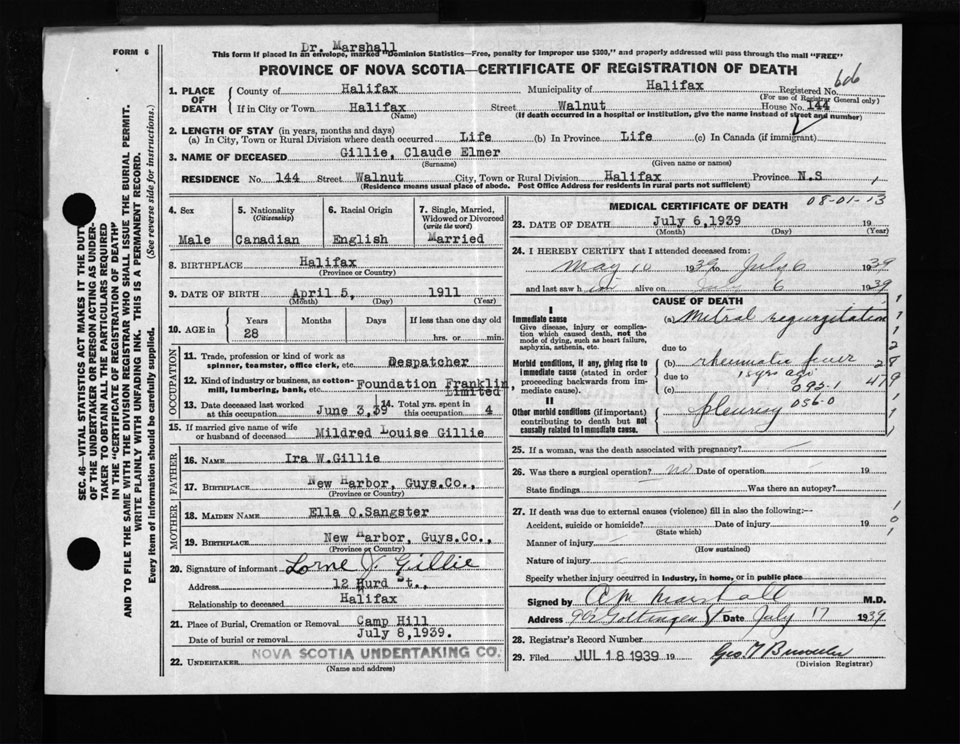 Dr. Marshall
FORM 6
This form if placed in an envelope, marked "Dominion Statistics—Free, penalty for improper use $300," and properly addressed will pass through the mail "FREE"
PROVINCE OF NOVA SCOTIA—CERTIFICATE OF REGISTRATION OF DEATH
606
1. PLACE OF DEATH
County of Halifax Municipality of Halifax Registered No.
(For use of Registrar General only)
If in City or Town Halifax Street Walnut House No. 144
(Name) (If death occurred in a hospital or institution, give the name instead of street and number)
2. LENGTH OF STAY (in years, months and days)
(a) In City, Town or Rural Division where death occurred Life (b) In Province Life (c) In Canada (if immigrant)
3. NAME OF DECEASED Gillie, Claude Elmer
(Surname) (Given name or names)
RESIDENCE No. 144 Street Walnut City, Town or Rural Division Halifax Province N.S
(Residence means usual place of abode. Post Office Address for residents in rural parts not sufficient)
4. Sex 5. Nationality (Citizenship) 6. Racial Origin 7. Single, Married, Widowed or Divorced (write the word)
Male Canadian English Married
8. BIRTHPLACE Halifax
(Province or Country)
9. DATE OF BIRTH April 5, 1911
(Month) (Day) (Year)
10. AGE in Years Months Days If less than one day old
28 hrs. or min.
OCCUPATION
11. Trade, profession or kind of work as spinner, teamster, office clerk, etc. Despatcher
12. Kind of industry or business, as cotton-mill, lumbering, bank, etc. Foundation Franklin, Limited
13. Date deceased last worked at this occupation June 3,39 14. Total yrs. spent in this occupation 4
15. If married give name of wife or husband of deceased Mildred Louise Gillie
FATHER
16. NAME Ira W.Gillie
17. BIRTHPLACE New Harbor, Guys.Co.,
(Province or Country)
MOTHER
18. MAIDEN NAME Ella O.Sangster
19. BIRTHPLACE New Harbor, Guys.Co.,
(Province or Country)
20. Signature of informant Lorne J. Gillie
Address 12 Hurd St.,
Halifax
Relationship to deceased
21. Place of Burial, Cremation or Removal Camp Hill
Date of burial or removal July 8,1939.
22. UNDERTAKER NOVA SCOTIA UNDERTAKING CO.
(Name and address)
MEDICAL CERTIFICATE OF DEATH
08-01-13
23. DATE OF DEATH July 6,1939 19
(Month) (Day) (Year)
24. I HEREBY CERTIFY that I attended deceased from:
May 10 1939 to July 6 1939
and last saw h im alive on July 6 1939
CAUSE OF DEATH
I
Immediate cause (a) Mitral regurgitation
Give disease, injury or complication which caused death, not the mode of dying, such as heart failure, asphyxia, asthenia, etc.
due to
Morbid conditions, if any, giving rise to immediate cause (stated in order proceeding backwards from immediate cause).
(b) rheumatic fever
due to 18 yrs ago
(c) 092-1
II
Other morbid conditions (if important) contributing to death but not causally related to immediate cause.
pleurisy 056-0
25. If a woman, was the death associated with pregnancy?
26. Was there a surgical operation? no Date of operation 19
State findings Was there an autopsy?
27. If death was due to external causes (violence) fill in also the following:—
Accident, suicide or homicide? Date of injury 19
(State which)
Manner of injury
(How sustained)
Nature of injury
Specify whether injury occurred in industry, in home, or in public place
Signed by A M Marshall M.D.
Address 902 Gottingen St Date July 17 1939
28. Registrar's Record Number
29. Filed JUL 18 1939 19
(Division Registrar)
SEC. 46—VITAL STATISTICS ACT MAKES IT THE DUTY
OF THE UNDERTAKER OR PERSON ACTING AS UNDER-
TAKER TO OBTAIN ALL THE PARTICULARS REQUIRED
IN THE "CERTIFICATE OF REGISTRATION OF DEATH"
AND TO FILE THE SAME WITH THE DIVISION REGISTRAR WHO SHALL ISSUE THE BURIAL PERMIT.
WRITE PLAINLY WITH UNFADING INK. THIS IS A PERMANENT RECORD.
Every item of information should be carefully supplied. (See reverse side for instructions.)